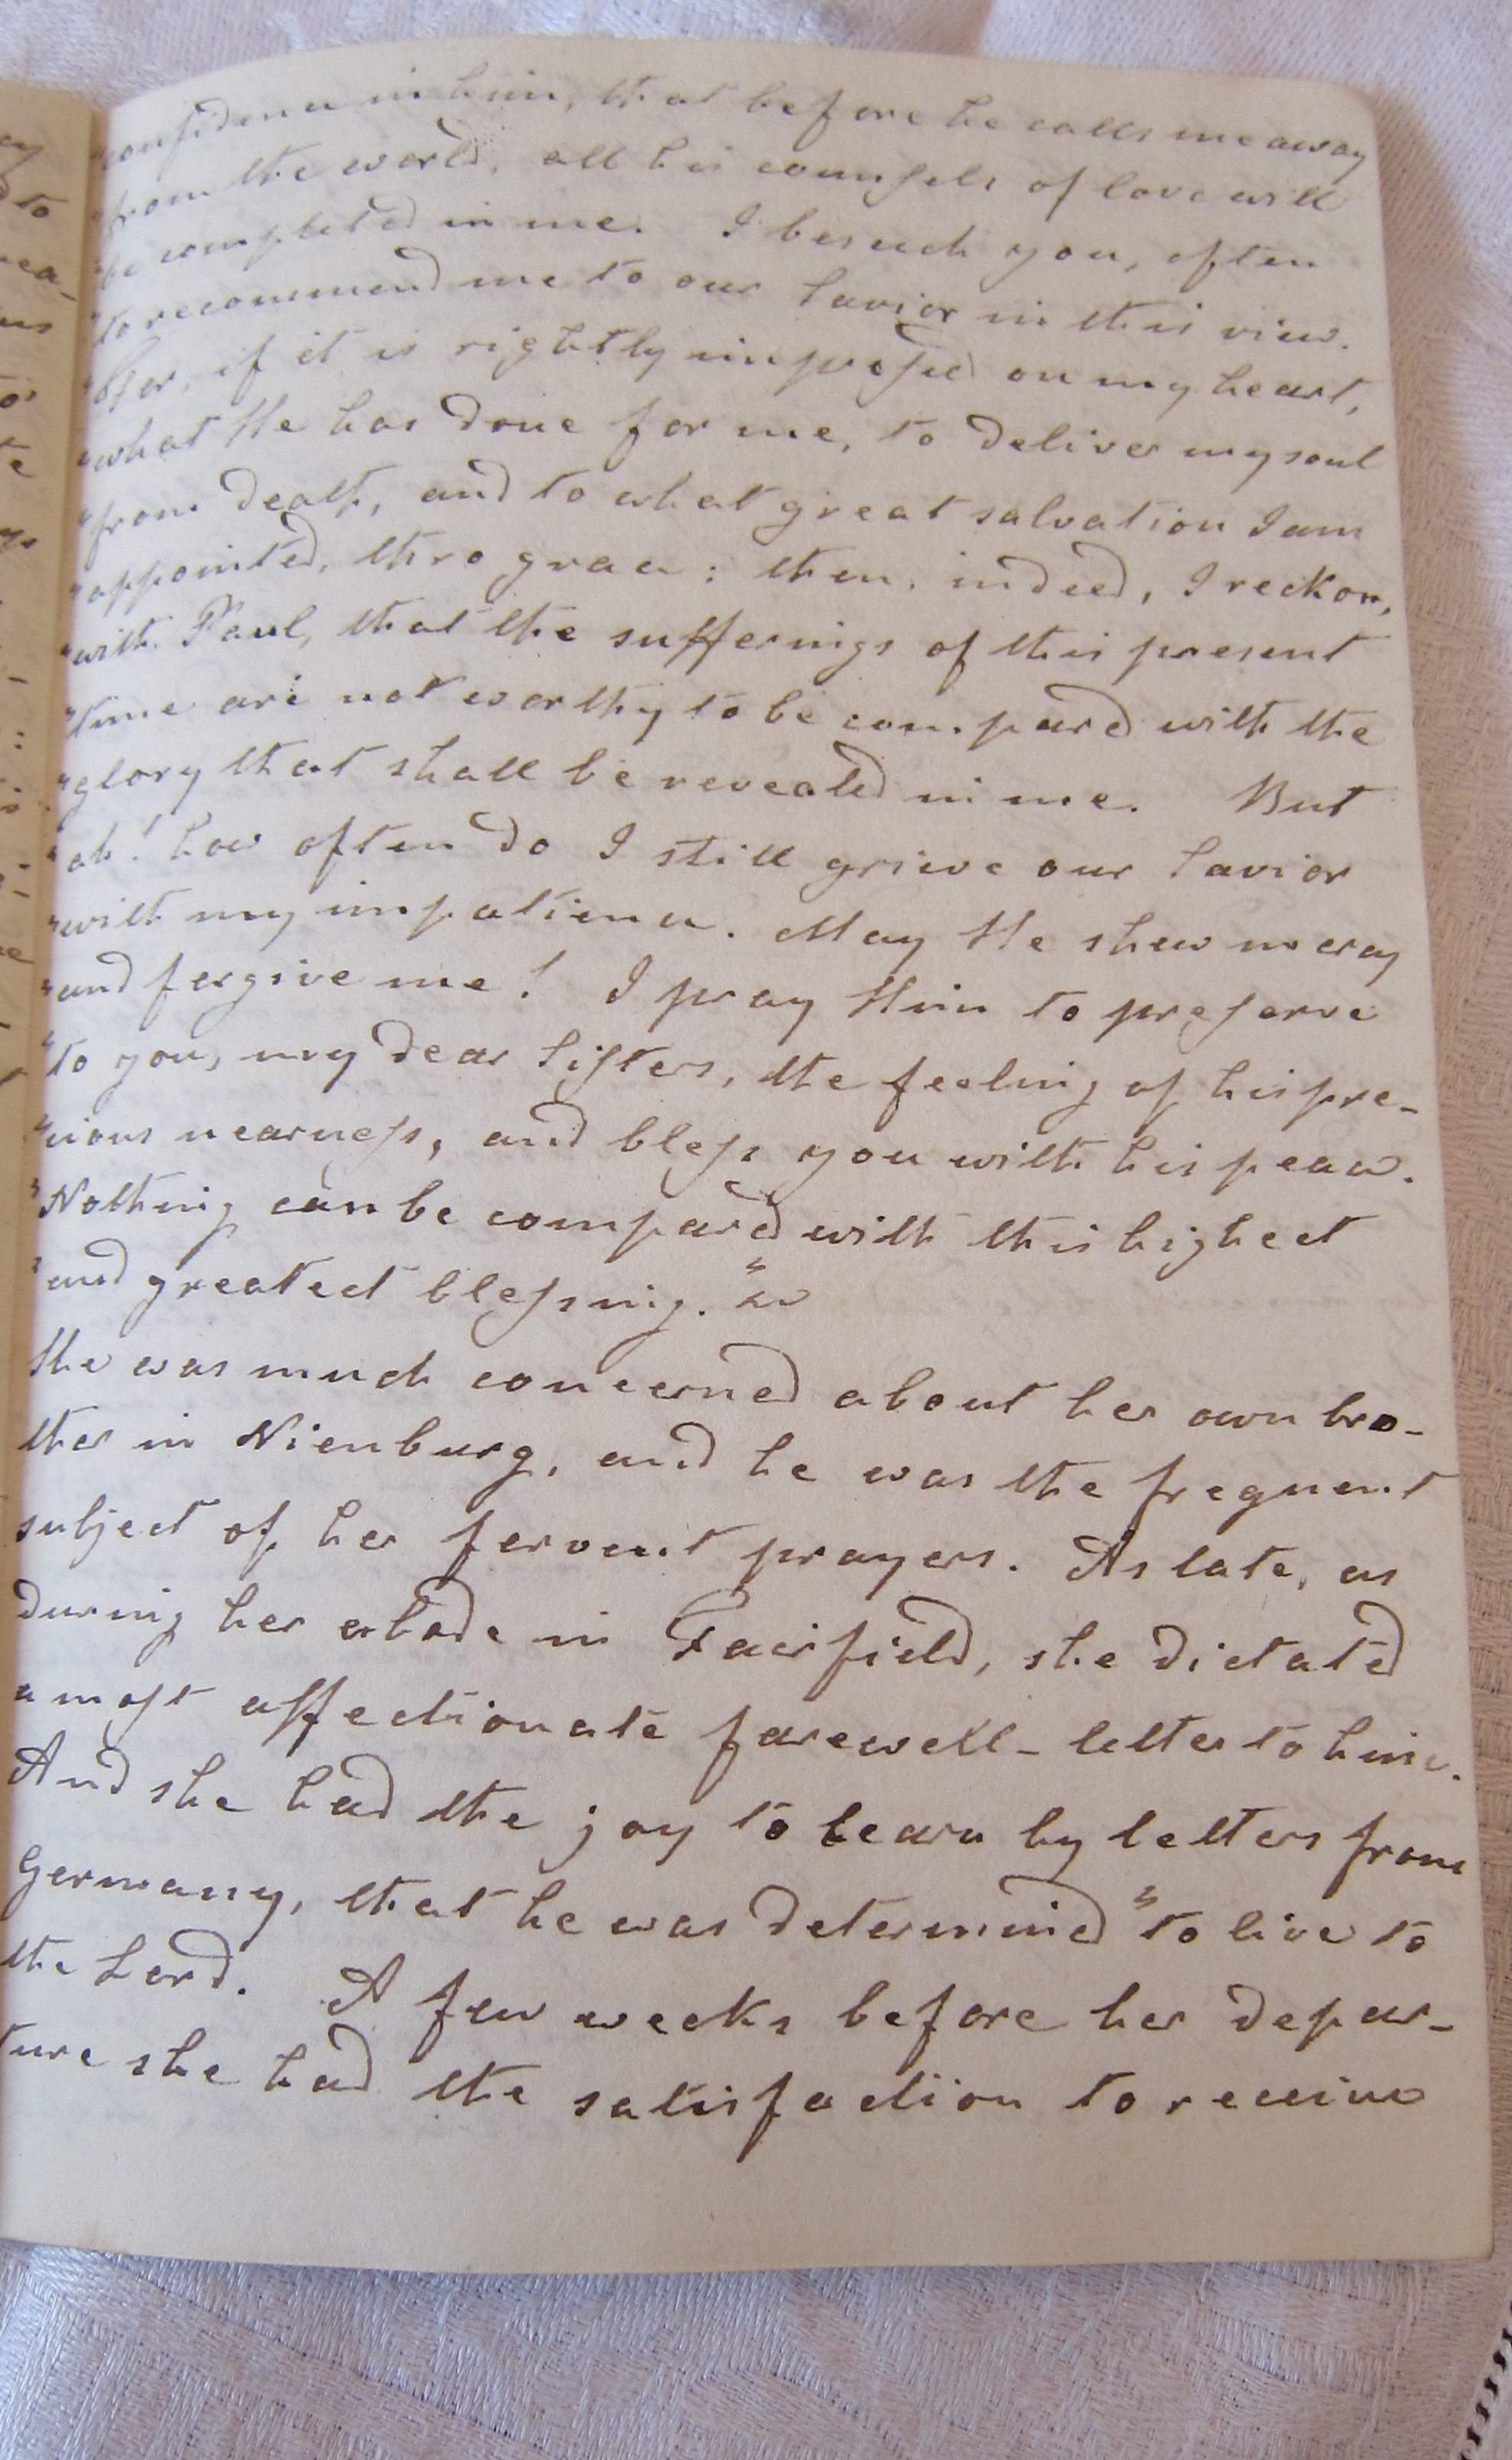 "confidence in him, that before he calls me away
"from the world, all his counsels of love will
"be completed in me. I beseech you, often
"to recommend me to our Savior in this view.
"For, if it is rightly impressed on my heart,
"what He has done for me, to deliver my soul
"from Death, and to what great salvation I am
"appointed, thro grace: then, indeed, I reckon,
"with Paul, that the sufferings of this present
"time are not worthy to be compared with the
"glory that shall be revealed in me. But
"ah! how often do I still grieve our Savior
"with my impatience. May He shew mercy
"and forgive me! I pray Him to preserve
"to you, my dear Sisters, the feeling of his pre-
"cious nearness, and bless you with his peace.
"Nothing can be compared with this highest
"and greatest blessing."
She was much concerned about her own bro-
ther in Nienburg, and he was the frequent
subject of her fervent prayers. As late, as
during her abode in Fairfield, she dictated
a most affectionate farewell-letter to him.
And she had the joy to learn by letters from
Germany, that he was determined "to live to
the Lord. A few weeks before her depar-
ture she had the satisfaction to receive